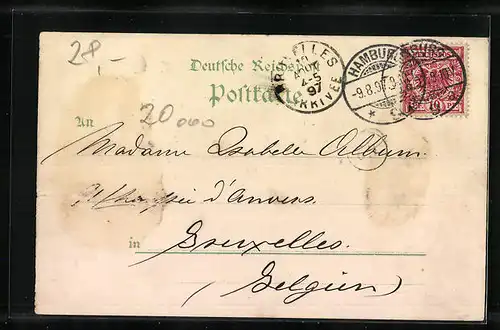 28,-
Deutsche Reichspost
Postkarte
BRUXELLES
10
4-5
97
ARRIVÉE
HAMBURG
-9.8.97
20000
An
Madame Isabelle Album.
Chaussée d'Anvers
in Bruxelles.
(Belgien)